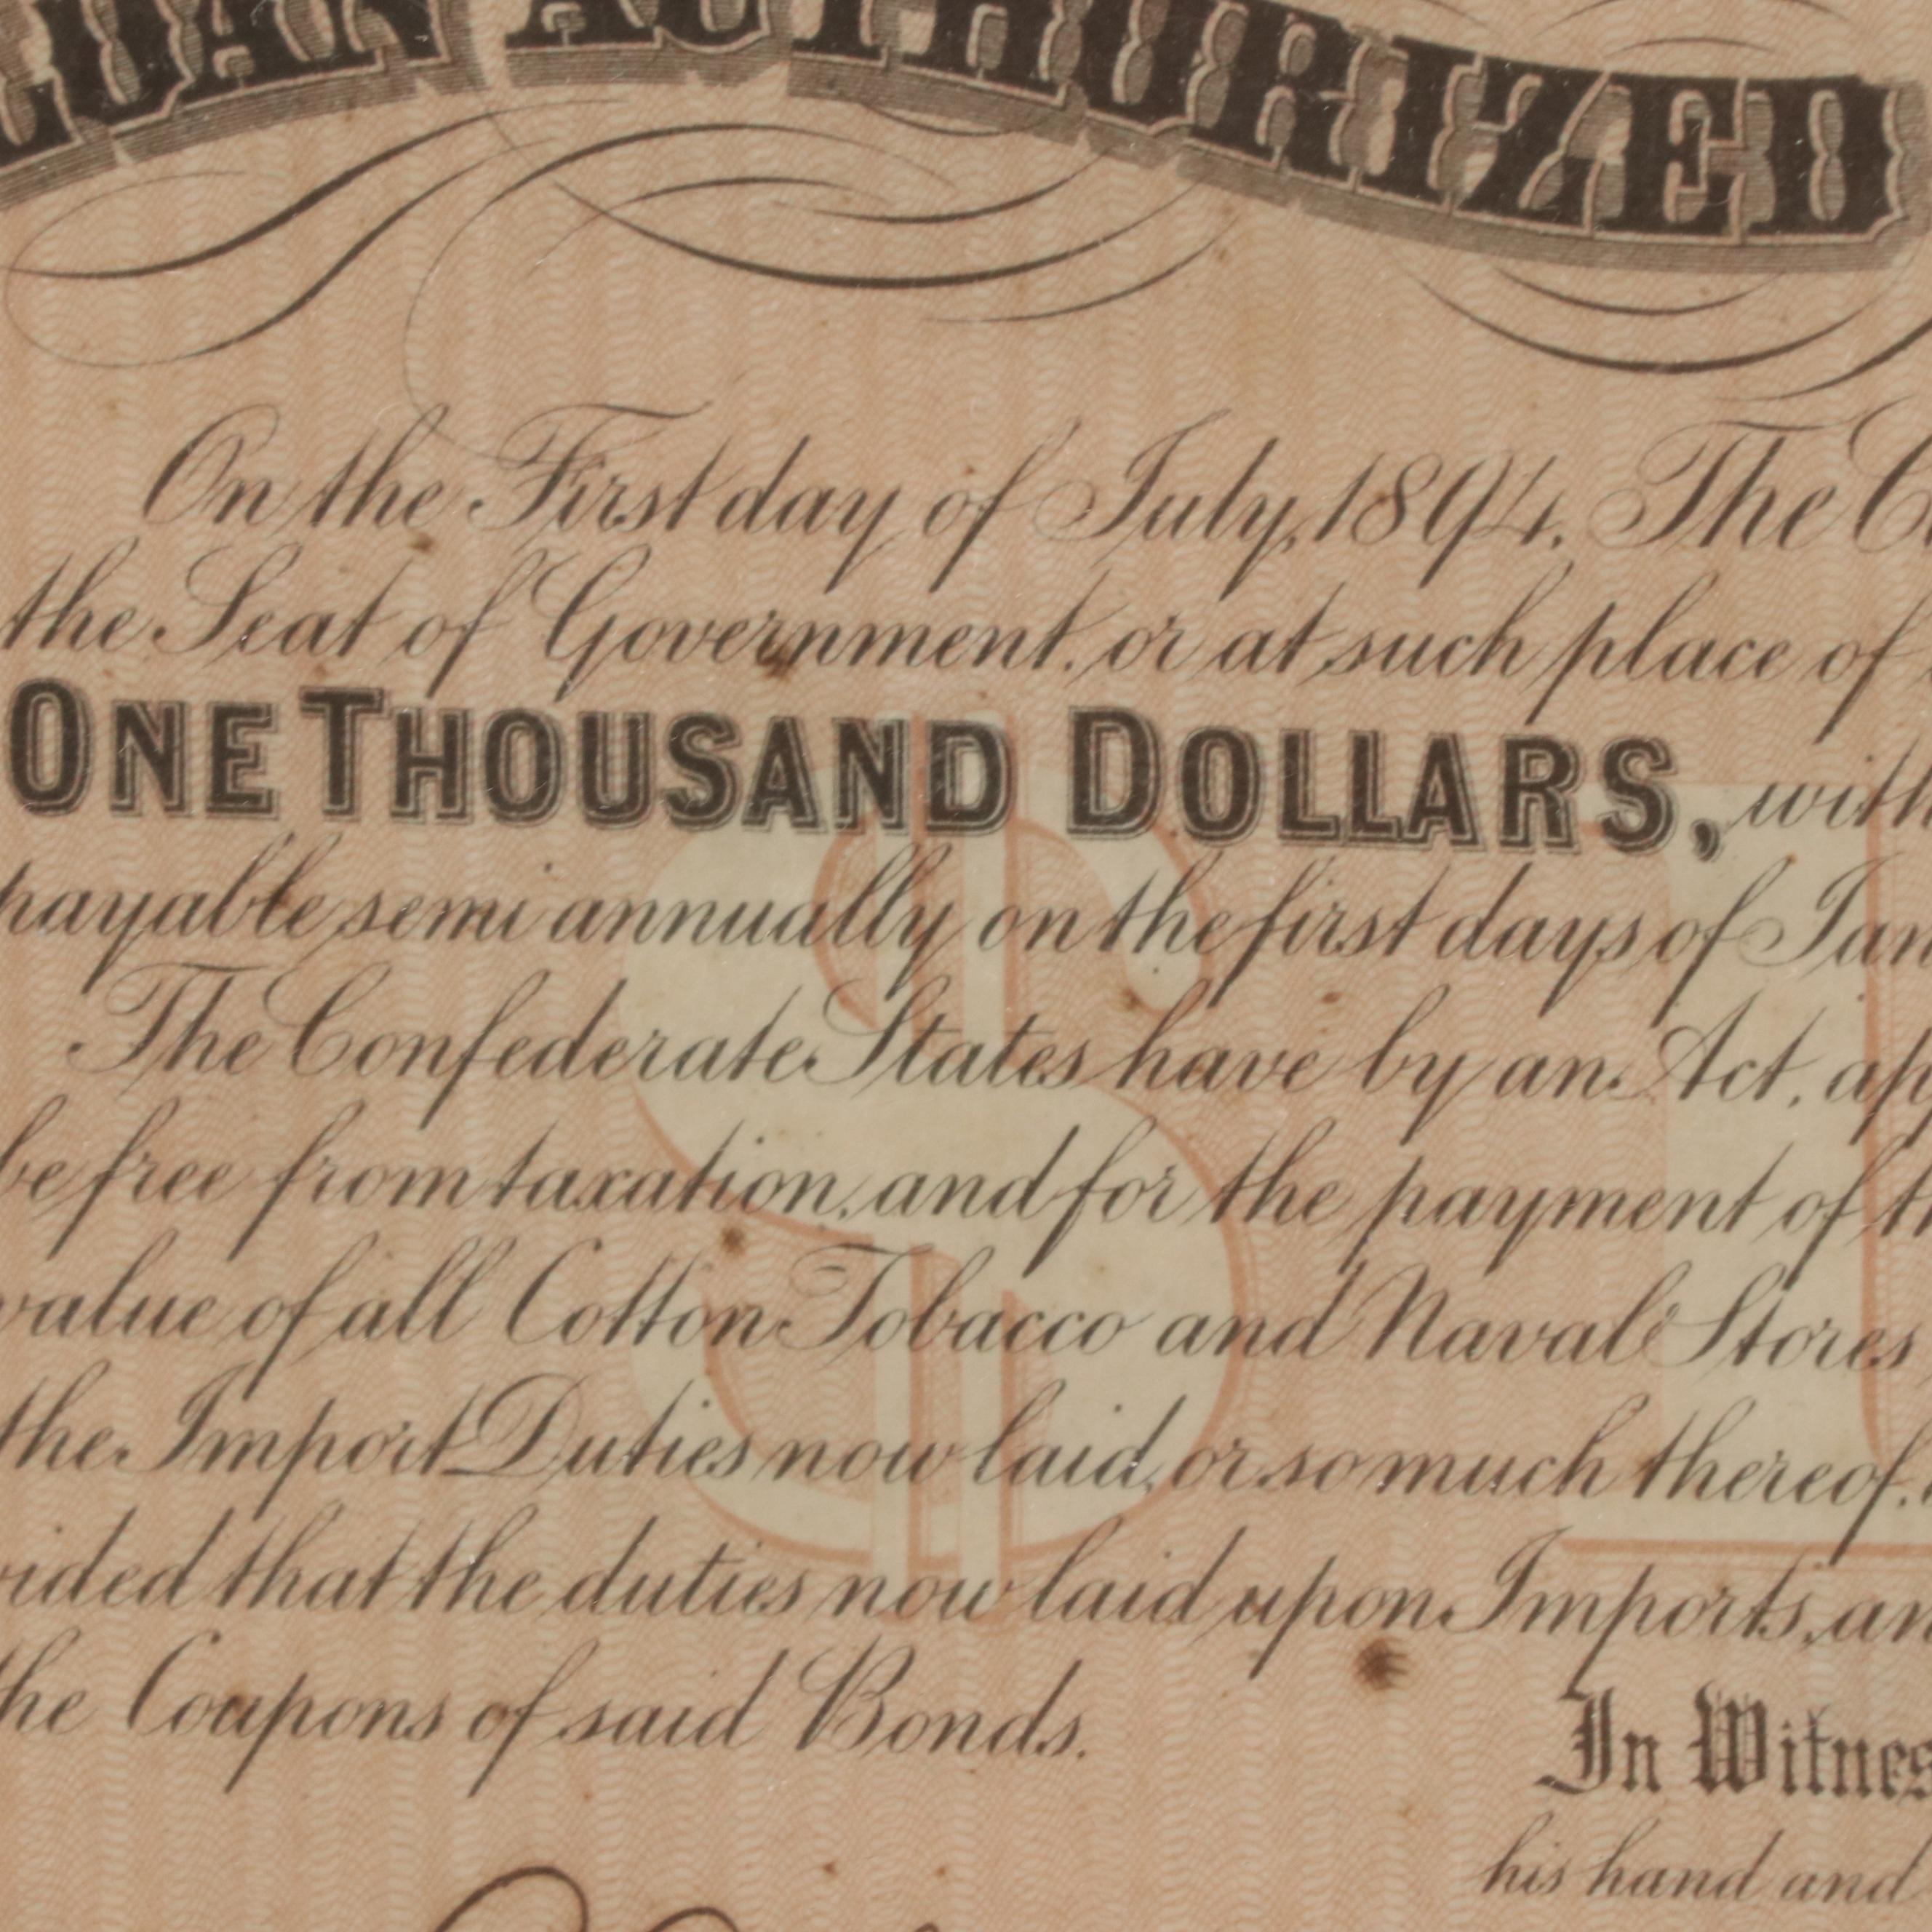 LOAN AUTHORIZED
On the First day of July, 1894, The
the Seat of Government, or at such place of
ONE THOUSAND DOLLARS, with
payable semi annually on the first days of Jan
The Confederate States have by an Act, ap
be free from taxation, and for the payment of th
value of all Cotton Tobacco and Naval Stores
the Import Duties now laid, or so much thereof,
vided that the duties now laid upon Imports, an
the Coupons of said Bonds.
In Witnes
his hand and
$1